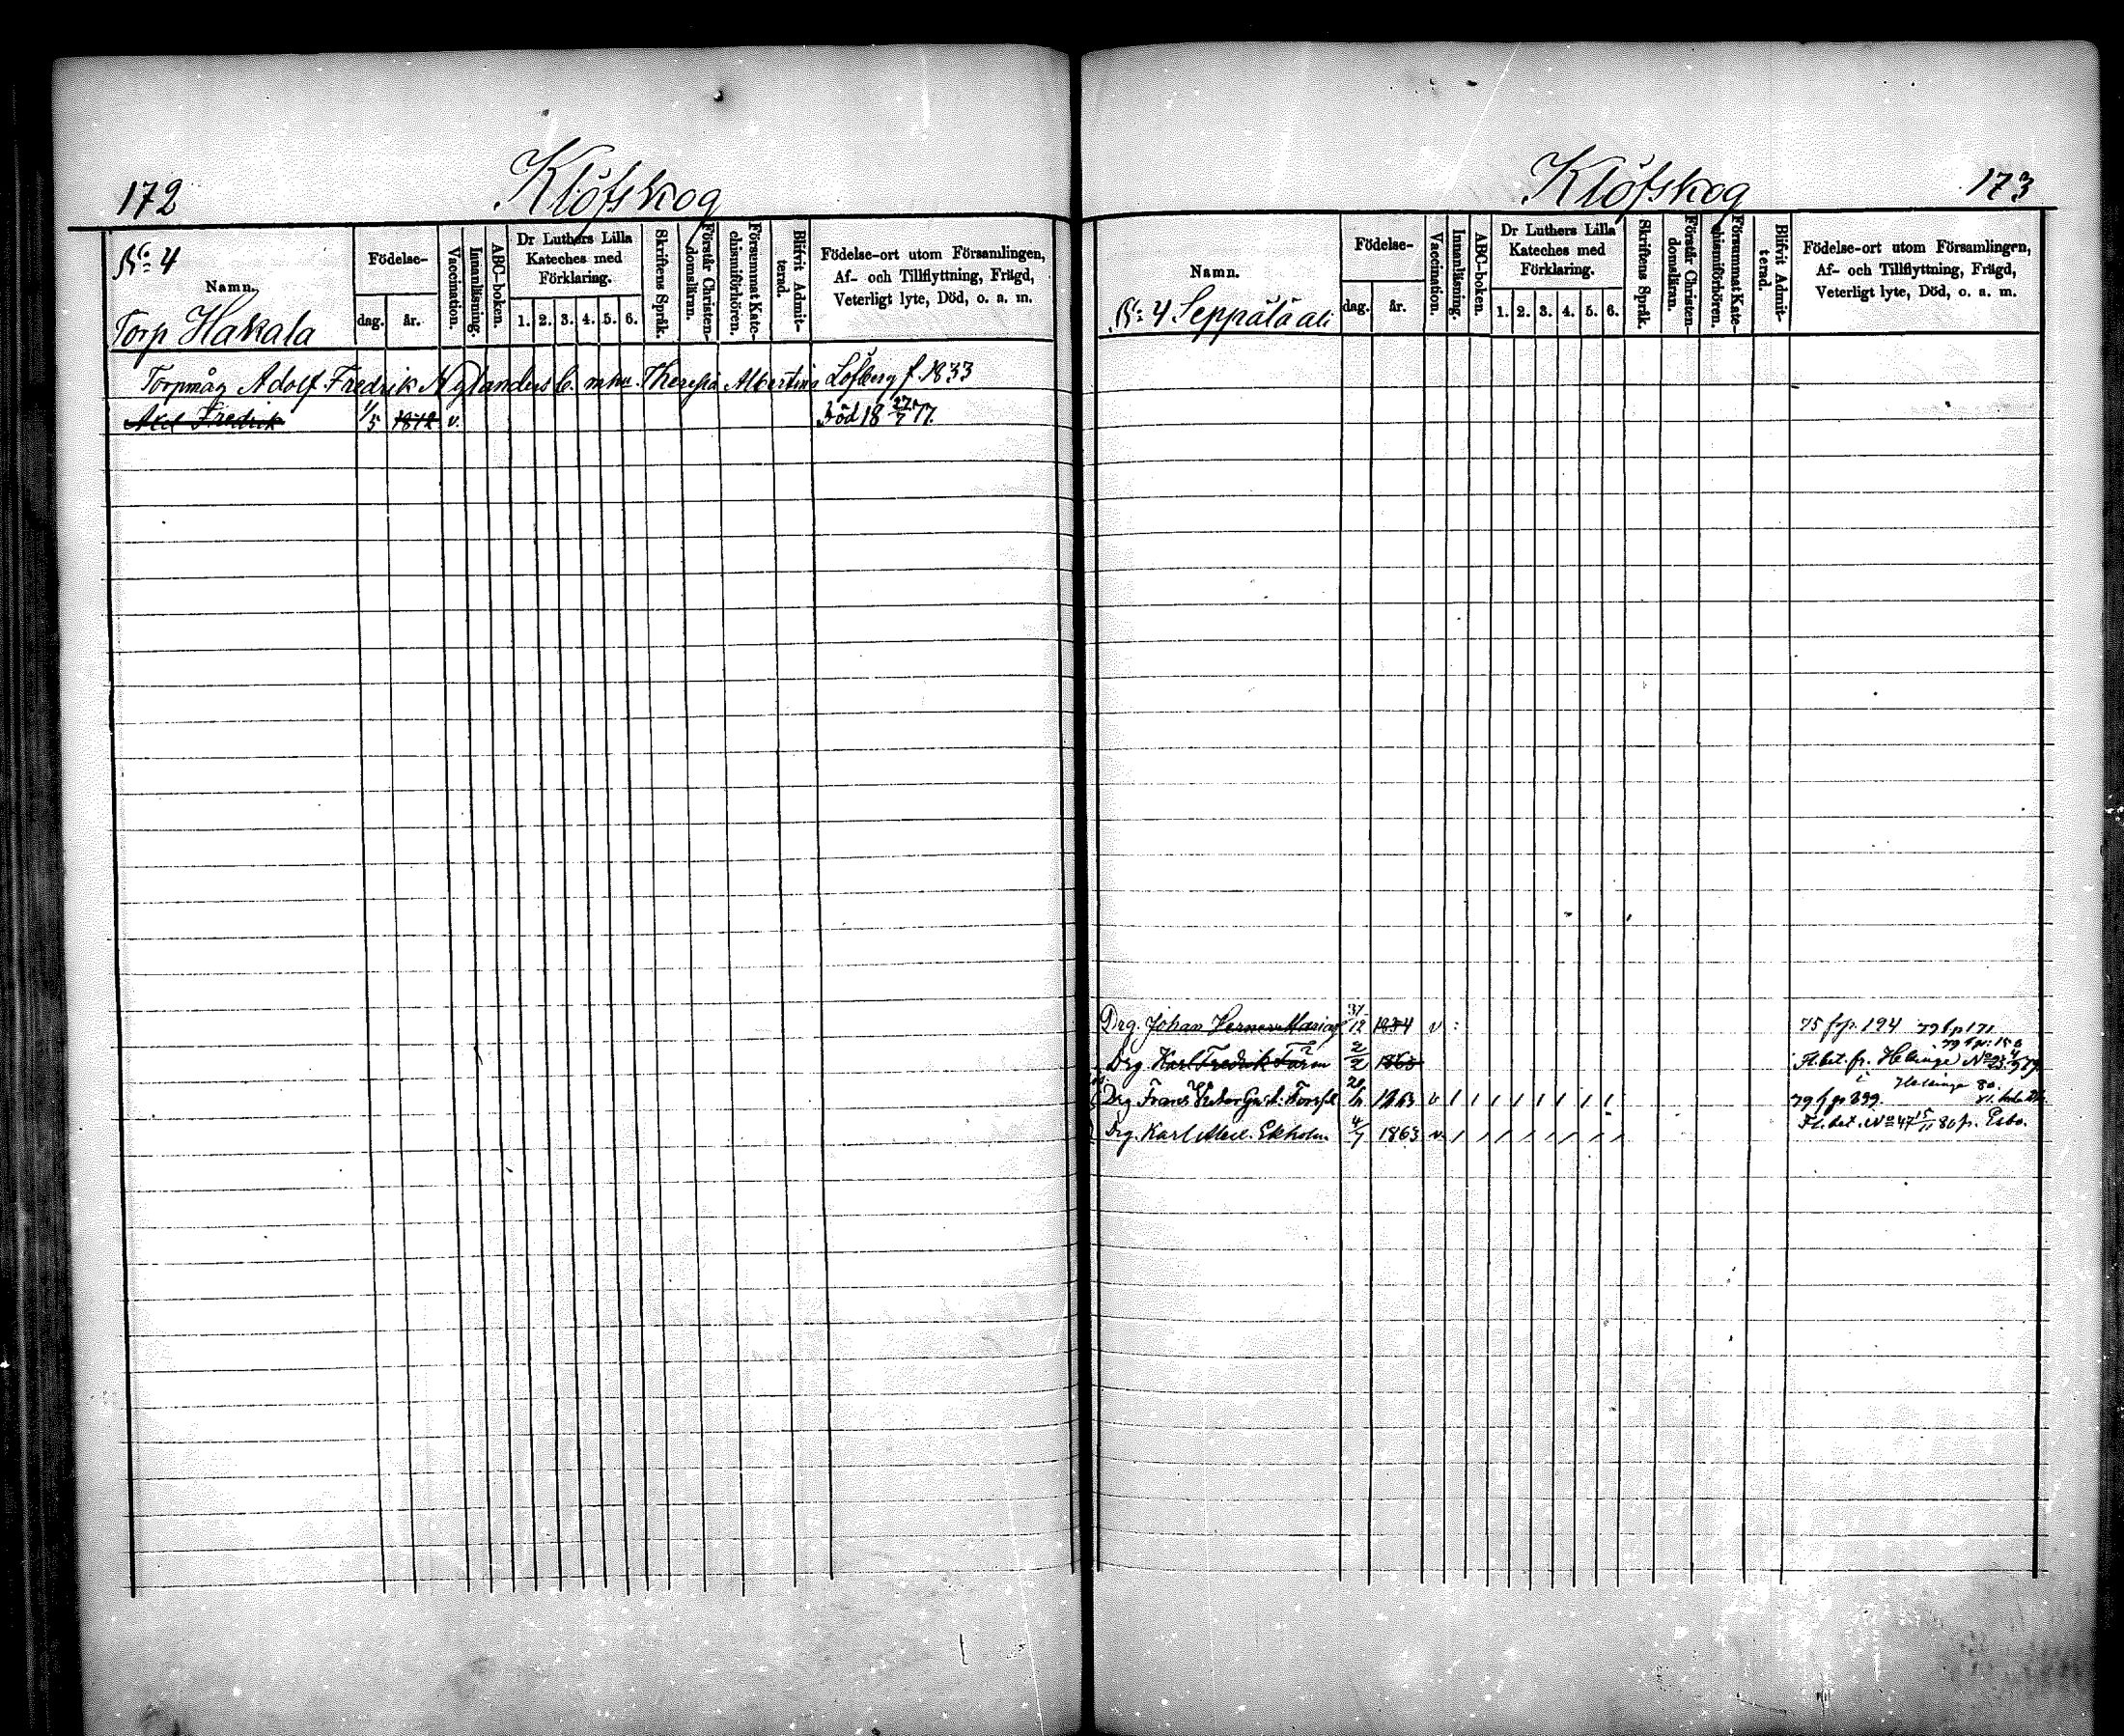 172
Klöfskog
No 4
Namn.
Torp Hakala
Födelse-
dag.
år.
Vaccination.
Innanläsning.
ABC-boken.
Dr Luthers Lilla
Kateches med
Förklaring.
1. 2. 3. 4. 5. 6.
Skriftens Språk.
Förstår Christen-
domsläran.
Försummat Kate-
chismiförhören.
Blifvit Admit-
terad.
Födelse-ort utom Församlingen,
Af- och Tillflyttning, Frägd,
Veterligt lyte, Död, o. a. m.
Torpmåg Adolf Fredrik Nylanders b. m hu. Theresia Albertina Löfberg f. 1833
Axel Fredrik 1/5 1872 v. Död 18 27/7 77.
Klöfskog
173
Namn.
No 4 Seppälä
Födelse-
dag.
år.
Vaccination.
Innanläsning.
ABC-boken.
Dr Luthers Lilla
Kateches med
Förklaring.
1. 2. 3. 4. 5. 6.
Skriftens Språk.
Förstår Christen-
domsläran.
Försummat Kate-
chismiförhören.
Blifvit Admit-
terad.
Födelse-ort utom Församlingen,
Af- och Tillflyttning, Frägd,
Veterligt lyte, Död, o. a. m.
Drg. Johan 31/12 v 75 fr p. 194 79 f p 171
Drg Karl Fredrik 2/2 Fl. bet. fr. Helsinge No
Helsinge 80.
Drg Frans Victor Gust. 1863 v 79 f p 299.
Drg. Karl Ekholm 4/7 1863 v. Fl. bet. No 47 15/11 80 fr. Esbo.